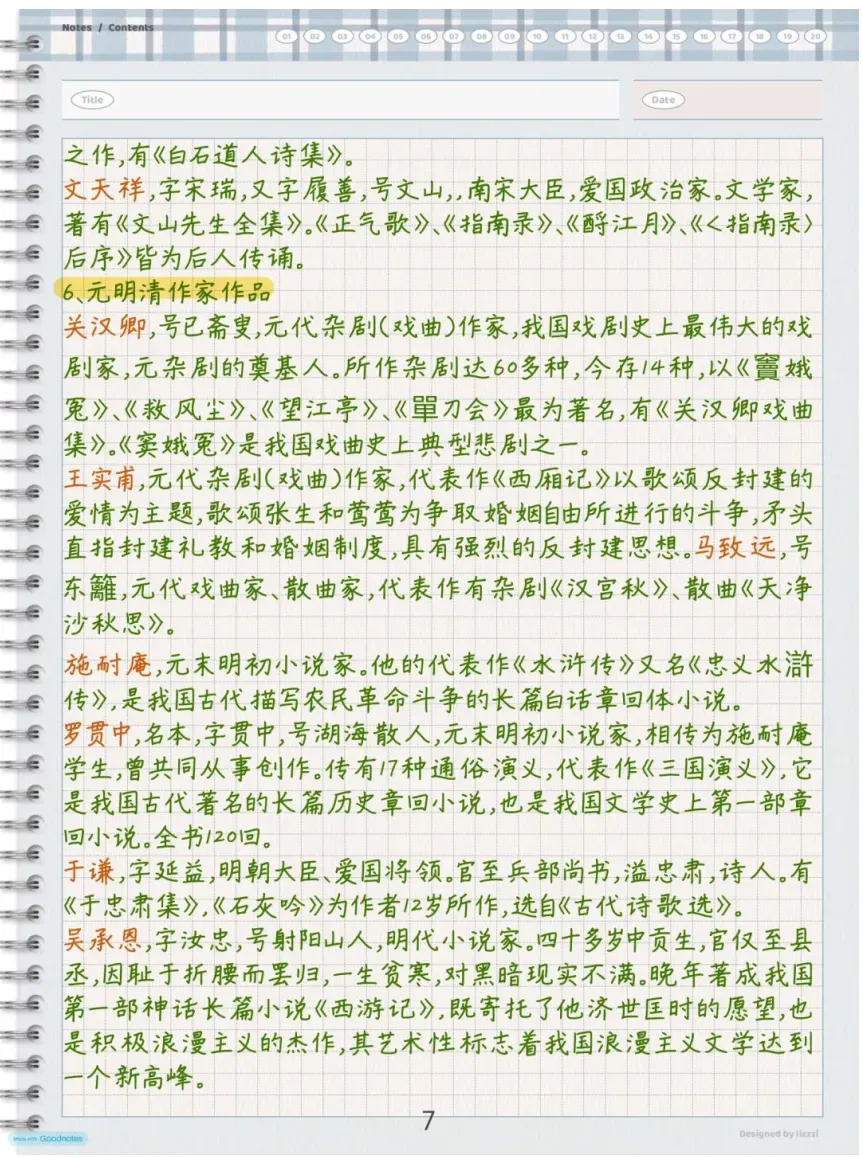 Notes / Contents
01 02 03 04 05 06 07 08 09 10 11 12 13 14 15 16 17 18 19 20
Title
Date
之作,有《白石道人诗集》。
文天祥,字宋瑞,又字履善,号文山,,南宋大臣,爱国政治家。文学家,
著有《文山先生全集》。《正气歌》、《指南录》、《酹江月》、《〈指南录〉
后序》皆为后人传诵。
6、元明清作家作品
关汉卿,号已斋叟,元代杂剧(戏曲)作家,我国戏剧史上最伟大的戏
剧家,元杂剧的奠基人。所作杂剧达60多种,今存14种,以《竇娥
冤》、《救风尘》、《望江亭》、《單刀会》最为著名,有《关汉卿戏曲
集》。《窦娥冤》是我国戏曲史上典型悲剧之一。
王实甫,元代杂剧(戏曲)作家,代表作《西厢记》以歌颂反封建的
爱情为主题,歌颂张生和莺莺为争取婚姻自由所进行的斗争,矛头
直指封建礼教和婚姻制度,具有强烈的反封建思想。马致远,号
东籬,元代戏曲家、散曲家,代表作有杂剧《汉宫秋》、散曲《天净
沙秋思》。
施耐庵,元末明初小说家。他的代表作《水浒传》又名《忠义水滸
传》,是我国古代描写农民革命斗争的长篇白话章回体小说。
罗贯中,名本,字贯中,号湖海散人,元末明初小说家,相传为施耐庵
学生,曾共同从事创作。传有17种通俗演义,代表作《三国演义》,它
是我国古代著名的长篇历史章回小说,也是我国文学史上第一部章
回小说。全书120回。
于谦,字延益,明朝大臣、爱国将领。官至兵部尚书,溢忠肃,诗人。有
《于忠肃集》,《石灰吟》为作者12岁所作,选自《古代诗歌选》。
吴承恩,字汝忠,号射阳山人,明代小说家。四十多岁中贡生,官仅至县
丞,因耻于折腰而罢归,一生贫寒,对黑暗现实不满。晚年著成我国
第一部神话长篇小说《西游记》,既寄托了他济世匡时的愿望,也
是积极浪漫主义的杰作,其艺术性标志着我国浪漫主义文学达到
一个新高峰。
7
Made with Goodnotes
Designed by lizzzi